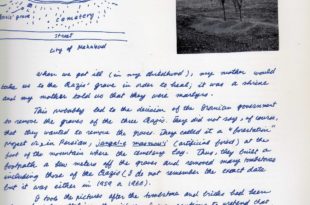 cemetery
street
City of Mahabad
When we got ill (in my childhood), my mother would
take us to the Qazis' grave in order to heal, it was a shrine
and my mother told us that they were martyrs.
This probably led to the decision of the Iranian government
to remove the graves of the three Qazis. They did not say, of course,
that they wanted to remove the graves. They called it a "forestation"
project or, in Persian, (artificial forest) at the
foot of the mountain where the cemetery lay. Thus, they built a
footpath a few meters off the graves and removed many tombstones
including those of the Qazis (I do not remember the exact date
but it was either in 1959 or 1960).
I took the picture after the tombstone and bricks had been